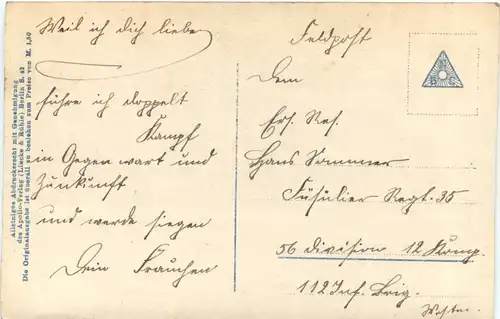 Weil ich dich liebe
führe ich doppelt
Kampf
in Gegenwart und
Zunkunft
und werde siegen
Dein Frauchen
Alleiniges Abdrucksrecht mit Genehmigung
des Apollo-Verlag (Lieske & Rühle) Berlin S. 42
Die Originalausgabe ist überall zu beziehen zum Preise von M. 1,50
Feldpost
Dem
Ers. Res.
Hans Sommer
Füsilier Regt. 35
56 Division 12 Komp.
112 Inf. Brig.
Westen